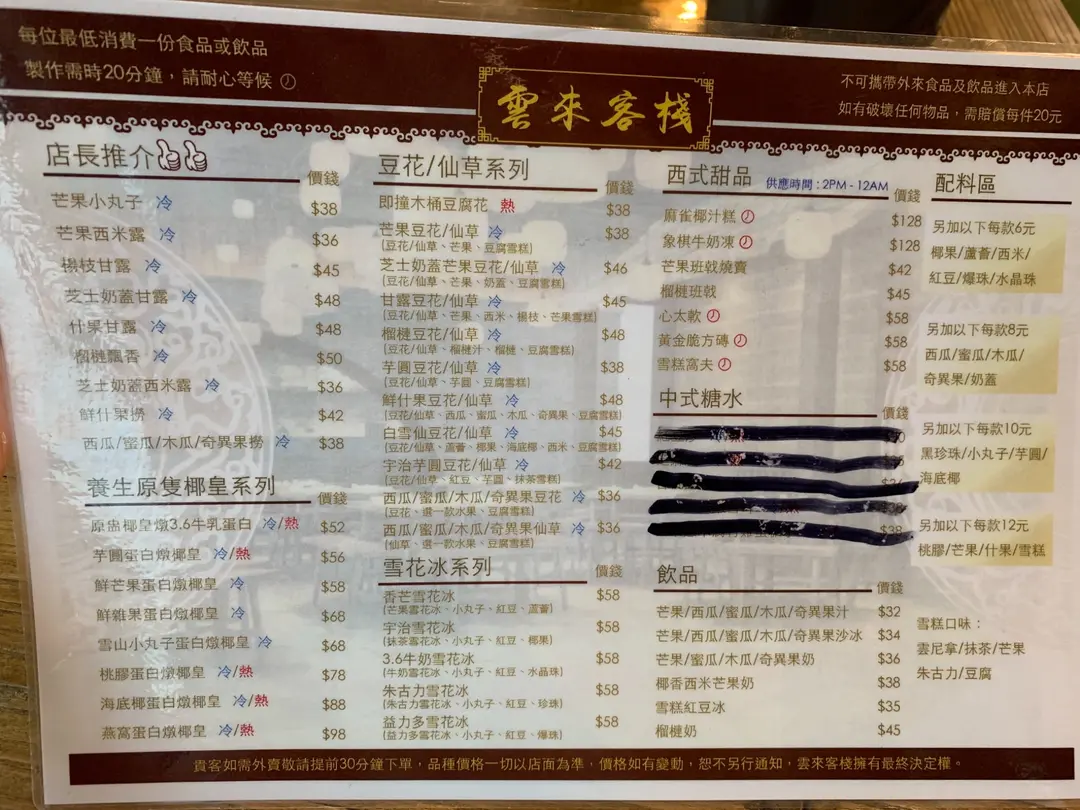 每位最低消費一份食品或飲品
製作需時20分鐘，請耐心等候
雲來客棧
不可攜帶外來食品及飲品進入本店
如有破壞任何物品，需賠償每件20元
店長推介
價錢
芒果小丸子 冷 $38
芒果西米露 冷 $36
楊枝甘露 冷 $45
芝士奶蓋甘露 冷 $48
什果甘露 冷 $48
榴槤飄香 冷 $50
芝士奶蓋西米露 冷 $36
鮮什果撈 冷 $42
西瓜/蜜瓜/木瓜/奇異果撈 冷 $38
養生原隻椰皇系列
價錢
原盅椰皇燉3.6牛乳蛋白 冷/熱 $52
芋圓蛋白燉椰皇 冷/熱 $56
鮮芒果蛋白燉椰皇 冷 $58
鮮雜果蛋白燉椰皇 冷 $68
雪山小丸子蛋白燉椰皇 冷 $68
桃膠蛋白燉椰皇 冷/熱 $78
海底椰蛋白燉椰皇 冷/熱 $88
燕窩蛋白燉椰皇 冷/熱 $98
豆花/仙草系列
價錢
即撞木桶豆腐花 熱 $38
芒果豆花/仙草 冷 $38
(豆花/仙草、芒果、豆腐雪糕)
芝士奶蓋芒果豆花/仙草 冷 $46
(豆花/仙草、芒果、奶蓋、豆腐雪糕)
甘露豆花/仙草 冷 $45
(豆花/仙草、芒果、西米、楊枝、芒果雪糕)
榴槤豆花/仙草 冷 $48
(豆花/仙草、榴槤汁、榴槤、豆腐雪糕)
芋圓豆花/仙草 冷 $38
(豆花/仙草、芋圓、豆腐雪糕)
鮮什果豆花/仙草 冷 $48
(豆花/仙草、西瓜、蜜瓜、木瓜、奇異果、豆腐雪糕)
白雪仙豆花/仙草 冷 $45
(豆花/仙草、蘆薈、椰果、海底椰、西米、豆腐雪糕)
宇治芋圓豆花/仙草 冷 $42
(豆花/仙草、紅豆、芋圓、抹茶雪糕)
西瓜/蜜瓜/木瓜/奇異果豆花 冷 $36
(豆花、選一款水果、豆腐雪糕)
西瓜/蜜瓜/木瓜/奇異果仙草 冷 $36
(仙草、選一款水果、豆腐雪糕)
雪花冰系列
價錢
香芒雪花冰 $58
(芒果雪花冰、小丸子、紅豆、蘆薈)
宇治雪花冰 $58
(抹茶雪花冰、小丸子、紅豆、椰果)
3.6牛奶雪花冰 $58
(牛奶雪花冰、小丸子、紅豆、水晶珠)
朱古力雪花冰 $58
(朱古力雪花冰、小丸子、紅豆、珍珠)
益力多雪花冰 $58
(益力多雪花冰、小丸子、紅豆、爆珠)
西式甜品 供應時間：2PM - 12AM
價錢
麻雀椰汁糕 $128
象棋牛奶凍 $128
芒果班戟燒賣 $42
榴槤班戟 $45
心太軟 $58
黃金脆方磚 $58
雪糕窩夫 $58
中式糖水
價錢
飲品
價錢
芒果/西瓜/蜜瓜/木瓜/奇異果汁 $32
芒果/西瓜/蜜瓜/木瓜/奇異果沙冰 $34
芒果/蜜瓜/木瓜/奇異果奶 $36
椰香西米芒果奶 $38
雪糕紅豆冰 $35
榴槤奶 $45
配料區
另加以下每款6元
椰果/蘆薈/西米/
紅豆/爆珠/水晶珠
另加以下每款8元
西瓜/蜜瓜/木瓜/
奇異果/奶蓋
另加以下每款10元
黑珍珠/小丸子/芋圓/
海底椰
另加以下每款12元
桃膠/芒果/什果/雪糕
雪糕口味：
雲尼拿/抹茶/芒果
朱古力/豆腐
貴客如需外賣敬請提前30分鐘下單，品種價格一切以店面為準，價格如有變動，恕不另行通知，雲來客棧擁有最終決定權。